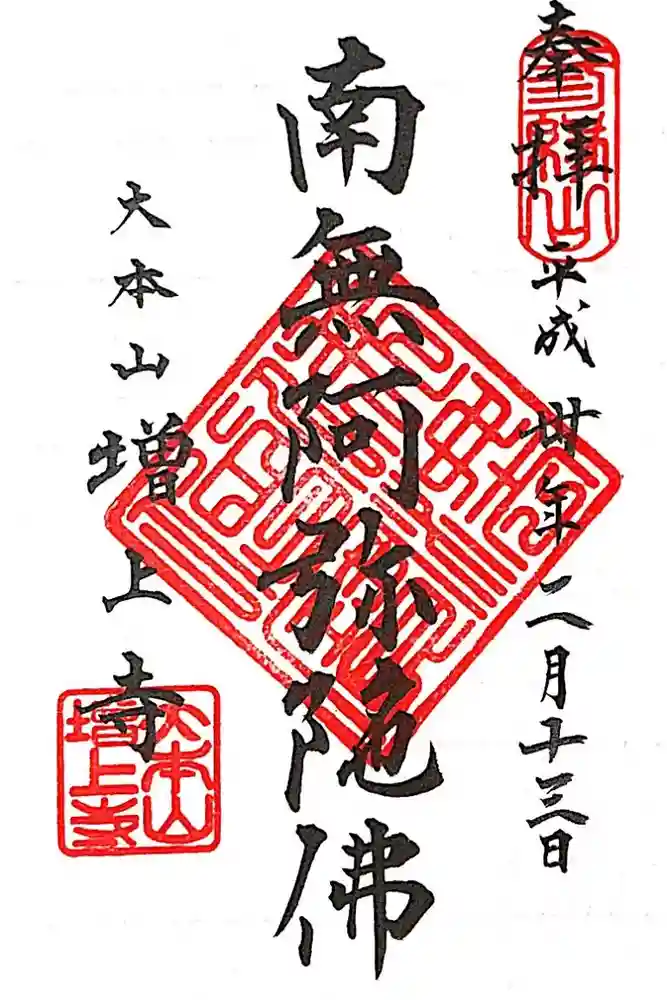 奉拝 平成廿年六月十三日
南無阿弥陀佛
大本山増上寺
大本山
増上寺